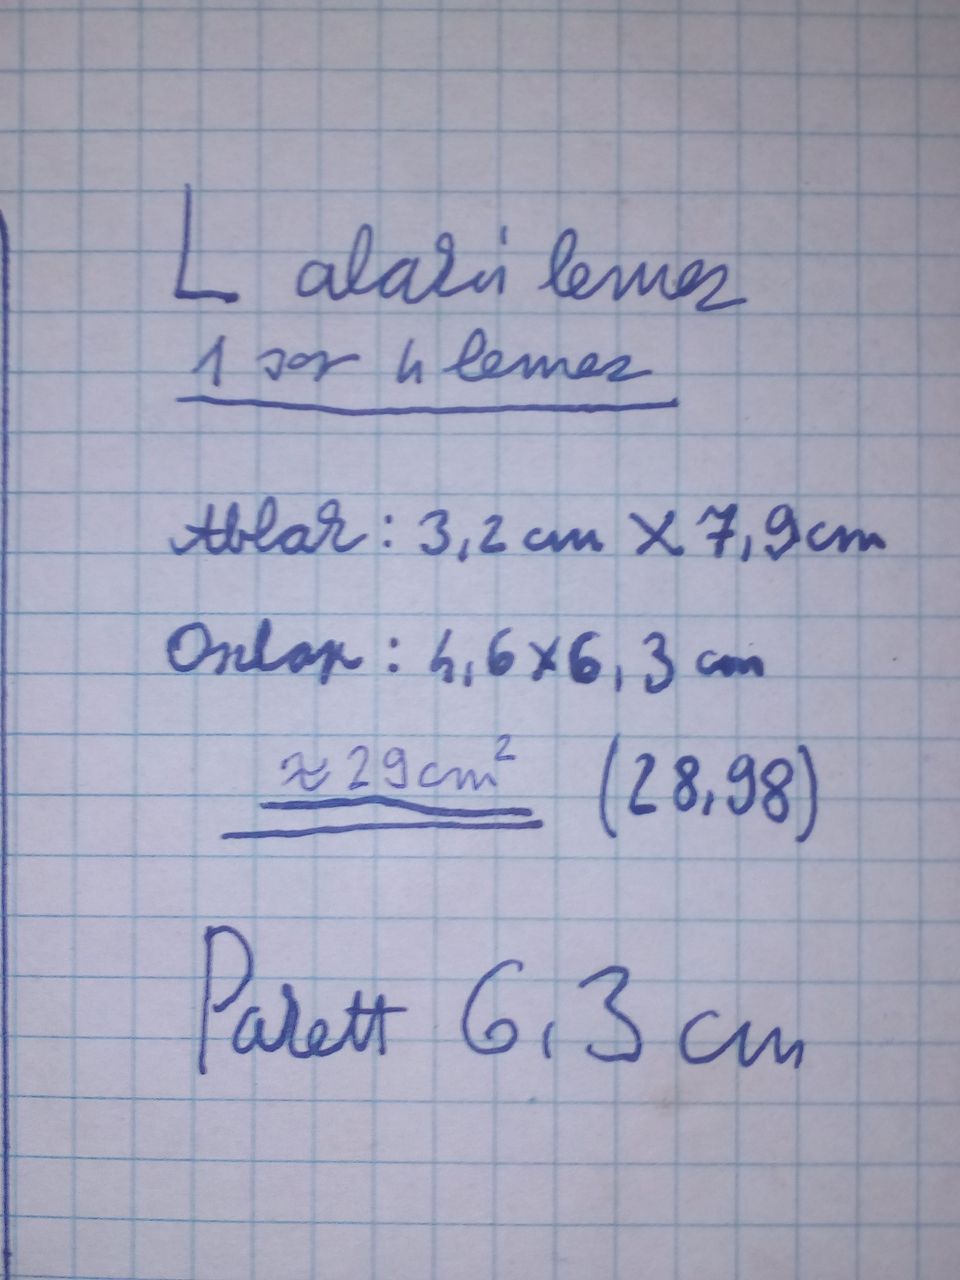 L alakú lemez
1 sor 4 lemez
Ablak: 3,2 cm x 7,9cm
Oszlop: 4,6x6,3 cm
≈29cm² (28,98)
Pakett 6,3 cm